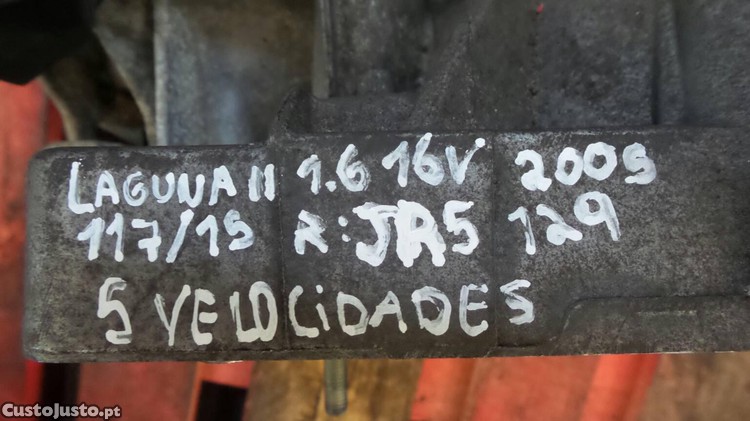 LAGUNA II 1.6 16V 2005
117/15 R:JR5 129
5 VELOCIDADES
CustoJusto.pt